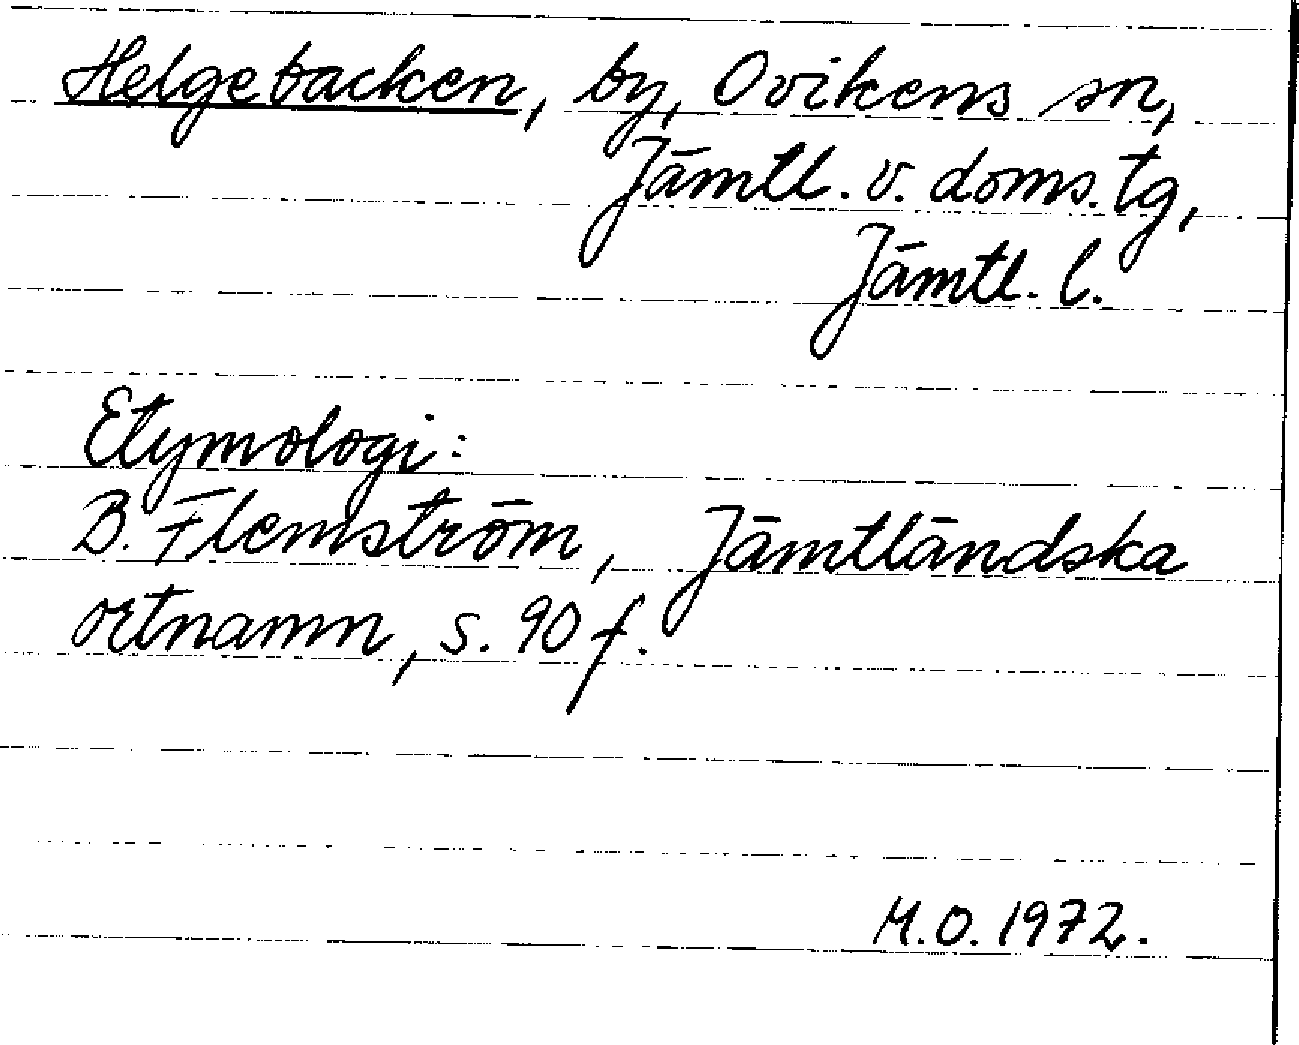 Helgebacken, by, Ovikens sn,
Jämtl. v. doms. tg,
Jämtl. l.
Etymologi:
B. Flemström, Jämtländska
ortnamn, s. 90 f.
M.O. 1972.